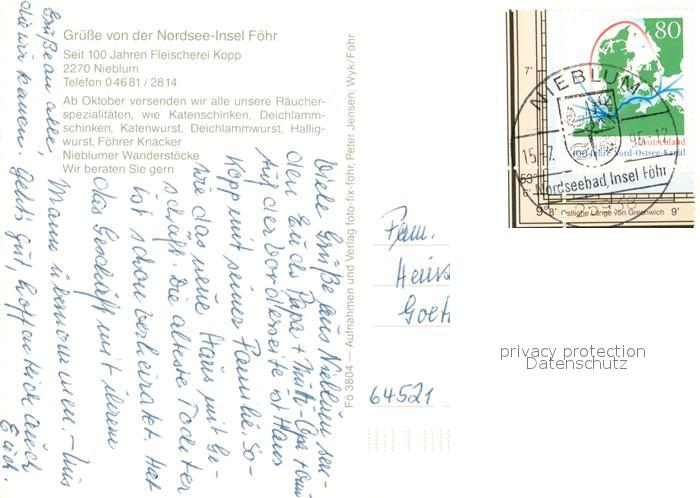 Grüße von der Nordsee-Insel Föhr
Seit 100 Jahren Fleischerei Kopp
2270 Nieblum
Telefon 04681/2814
Ab Oktober versenden wir alle unsere Räucher-
spezialitäten, wie Katenschinken, Deichlamm-
schinken, Katenwurst, Deichlammwurst, Hallig-
wurst, Föhrer Knacker
Nieblumer Wanderstöcke
Wir beraten Sie gern
Viele Grüße aus Nieblum sen-
den Euch Papa + Mutti - Opa +
Auf der Vorderseite ist Hans
Kopp mit seiner Familie. So-
wie das neue Haus mit Ge-
schäft. Die älteste Tochter
ist schon verheiratet. Hat
das Geschäft mit ihrem
Mann übernommen. - Uns
geht's gut, hoffentlich auch
Euch.
Grüße an alle,
die wir kennen.
Fö 3804 — Aufnahmen und Verlag foto-fix-föhr, Peter Jensen, Wyk/Föhr
Fam.
Goeth
64521
80
Deutschland
100 Jahre Nord-Ostsee-Kanal
7'
53°
6'
9° 8' Östliche Länge von Greenwich 9'
NIEBLUM
15.-7. 95-12
Nordseebad, Insel Föhr
25938
privacy protection
Datenschutz